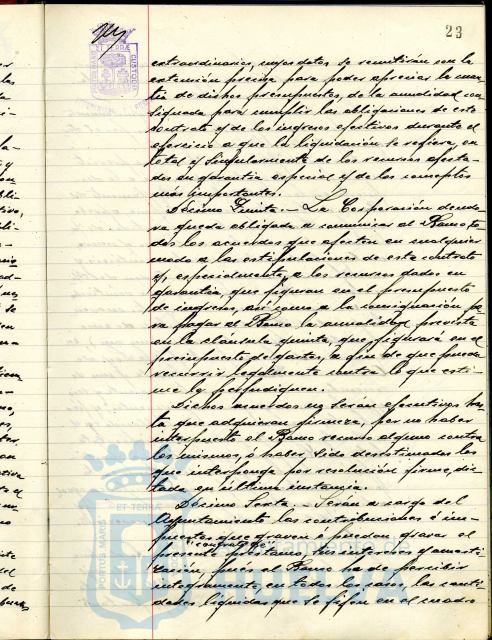 23
extraordinarios, cuyos datos se remitirán con la
extensión precisa para poder apreciar la cuan-
tía de dichos presupuestos, de la anualidad con-
signada para cumplir las obligaciones de este
contrato y de los ingresos efectivos durante el
ejercicio a que la liquidación se refiera, en
total y singularmente de los recursos afecta-
dos en garantía especial y de los conceptos
más importantes.
Décimo Quinta.- La Corporación deudo-
ra queda obligada a comunicar al Banco to-
dos los acuerdos que afecten en cualquier
modo a las estipulaciones de este contrato
y, especialmente, a los recursos dados en
garantía, que figuran en el presupuesto
de ingresos, así como a la consignación pa-
ra pagar al Banco la anualidad prevista
en la cláusula quinta, que figurará en el
presupuesto de gastos, a fin de que pueda
recurrir legalmente contra lo que esti-
me le perjudiquen.
Dichos acuerdos no serán ejecutivos has-
ta que adquieran firmeza, por no haber
interpuesto el Banco recurso alguno contra
los mismos, ó haber sido desestimados los
que interponga por resolución firme, dic-
tada en última instancia.
Décimo Sexta.- Serán a cargo del
Ayuntamiento las contribuciones é im-
puestos que graven ó puedan gravar el
presente préstamo, sus intereses y amorti-
zación, pues el Banco ha de percibir
íntegramente, en todos los casos, las canti-
dades líquidas que se fijen en el cuadro
PORTUS MARIS
ET TERRÆ
CUSTODIA
HUELVA